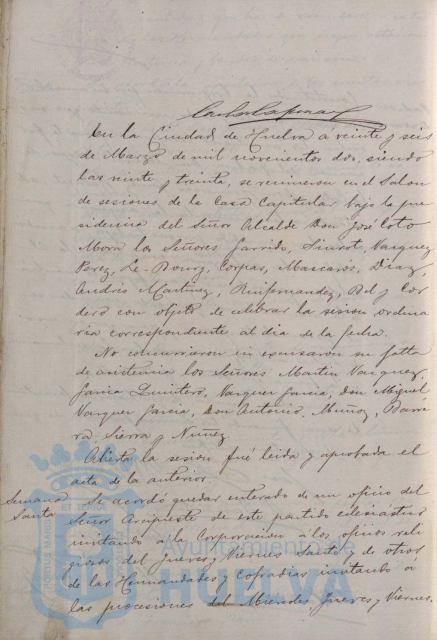 En la Ciudad de Huelva á veinte y seis
de Marzo de mil novecientos dos, siendo
las veinte y treinta, se reunieron en el Salon
de sesiones de la Casa Capitular bajo la pre
sidencia del Señor Alcalde Don José Coto
Mora los Señores Garrido, Siurot, Vazquez
Perez, Le-Bourg, Corpas, Mascaros, Diaz,
Andrés Martinez, Ruifernandez, Bel y Cor
dero con objeto de celebrar la sesion ordina
ria correspondiente al dia de la fecha.
No concurrieron ni escusaron su falta
de asistencia los Señores Martin Vazquez,
Garcia Quintero, Vazquez Garcia, Don Miguel
Vazquez Garcia, Don Antonio, Muñoz, Barre
ra, Sierra y Nuñez.
Abierta la sesion fué leida y aprobada el
acta de la anterior.
Semana
Santa
Se acordó quedar enterado de un oficio del
Señor Arcipreste de este partido eclesiastico
invitando á la Corporacion á los oficios reli
giosos del Jueves y Viernes Santo y de otros
de las Hermandades y Cofradias invitando á
las procesiones del Miercoles Jueves y Viernes.
Ayuntamiento de
HUELVA